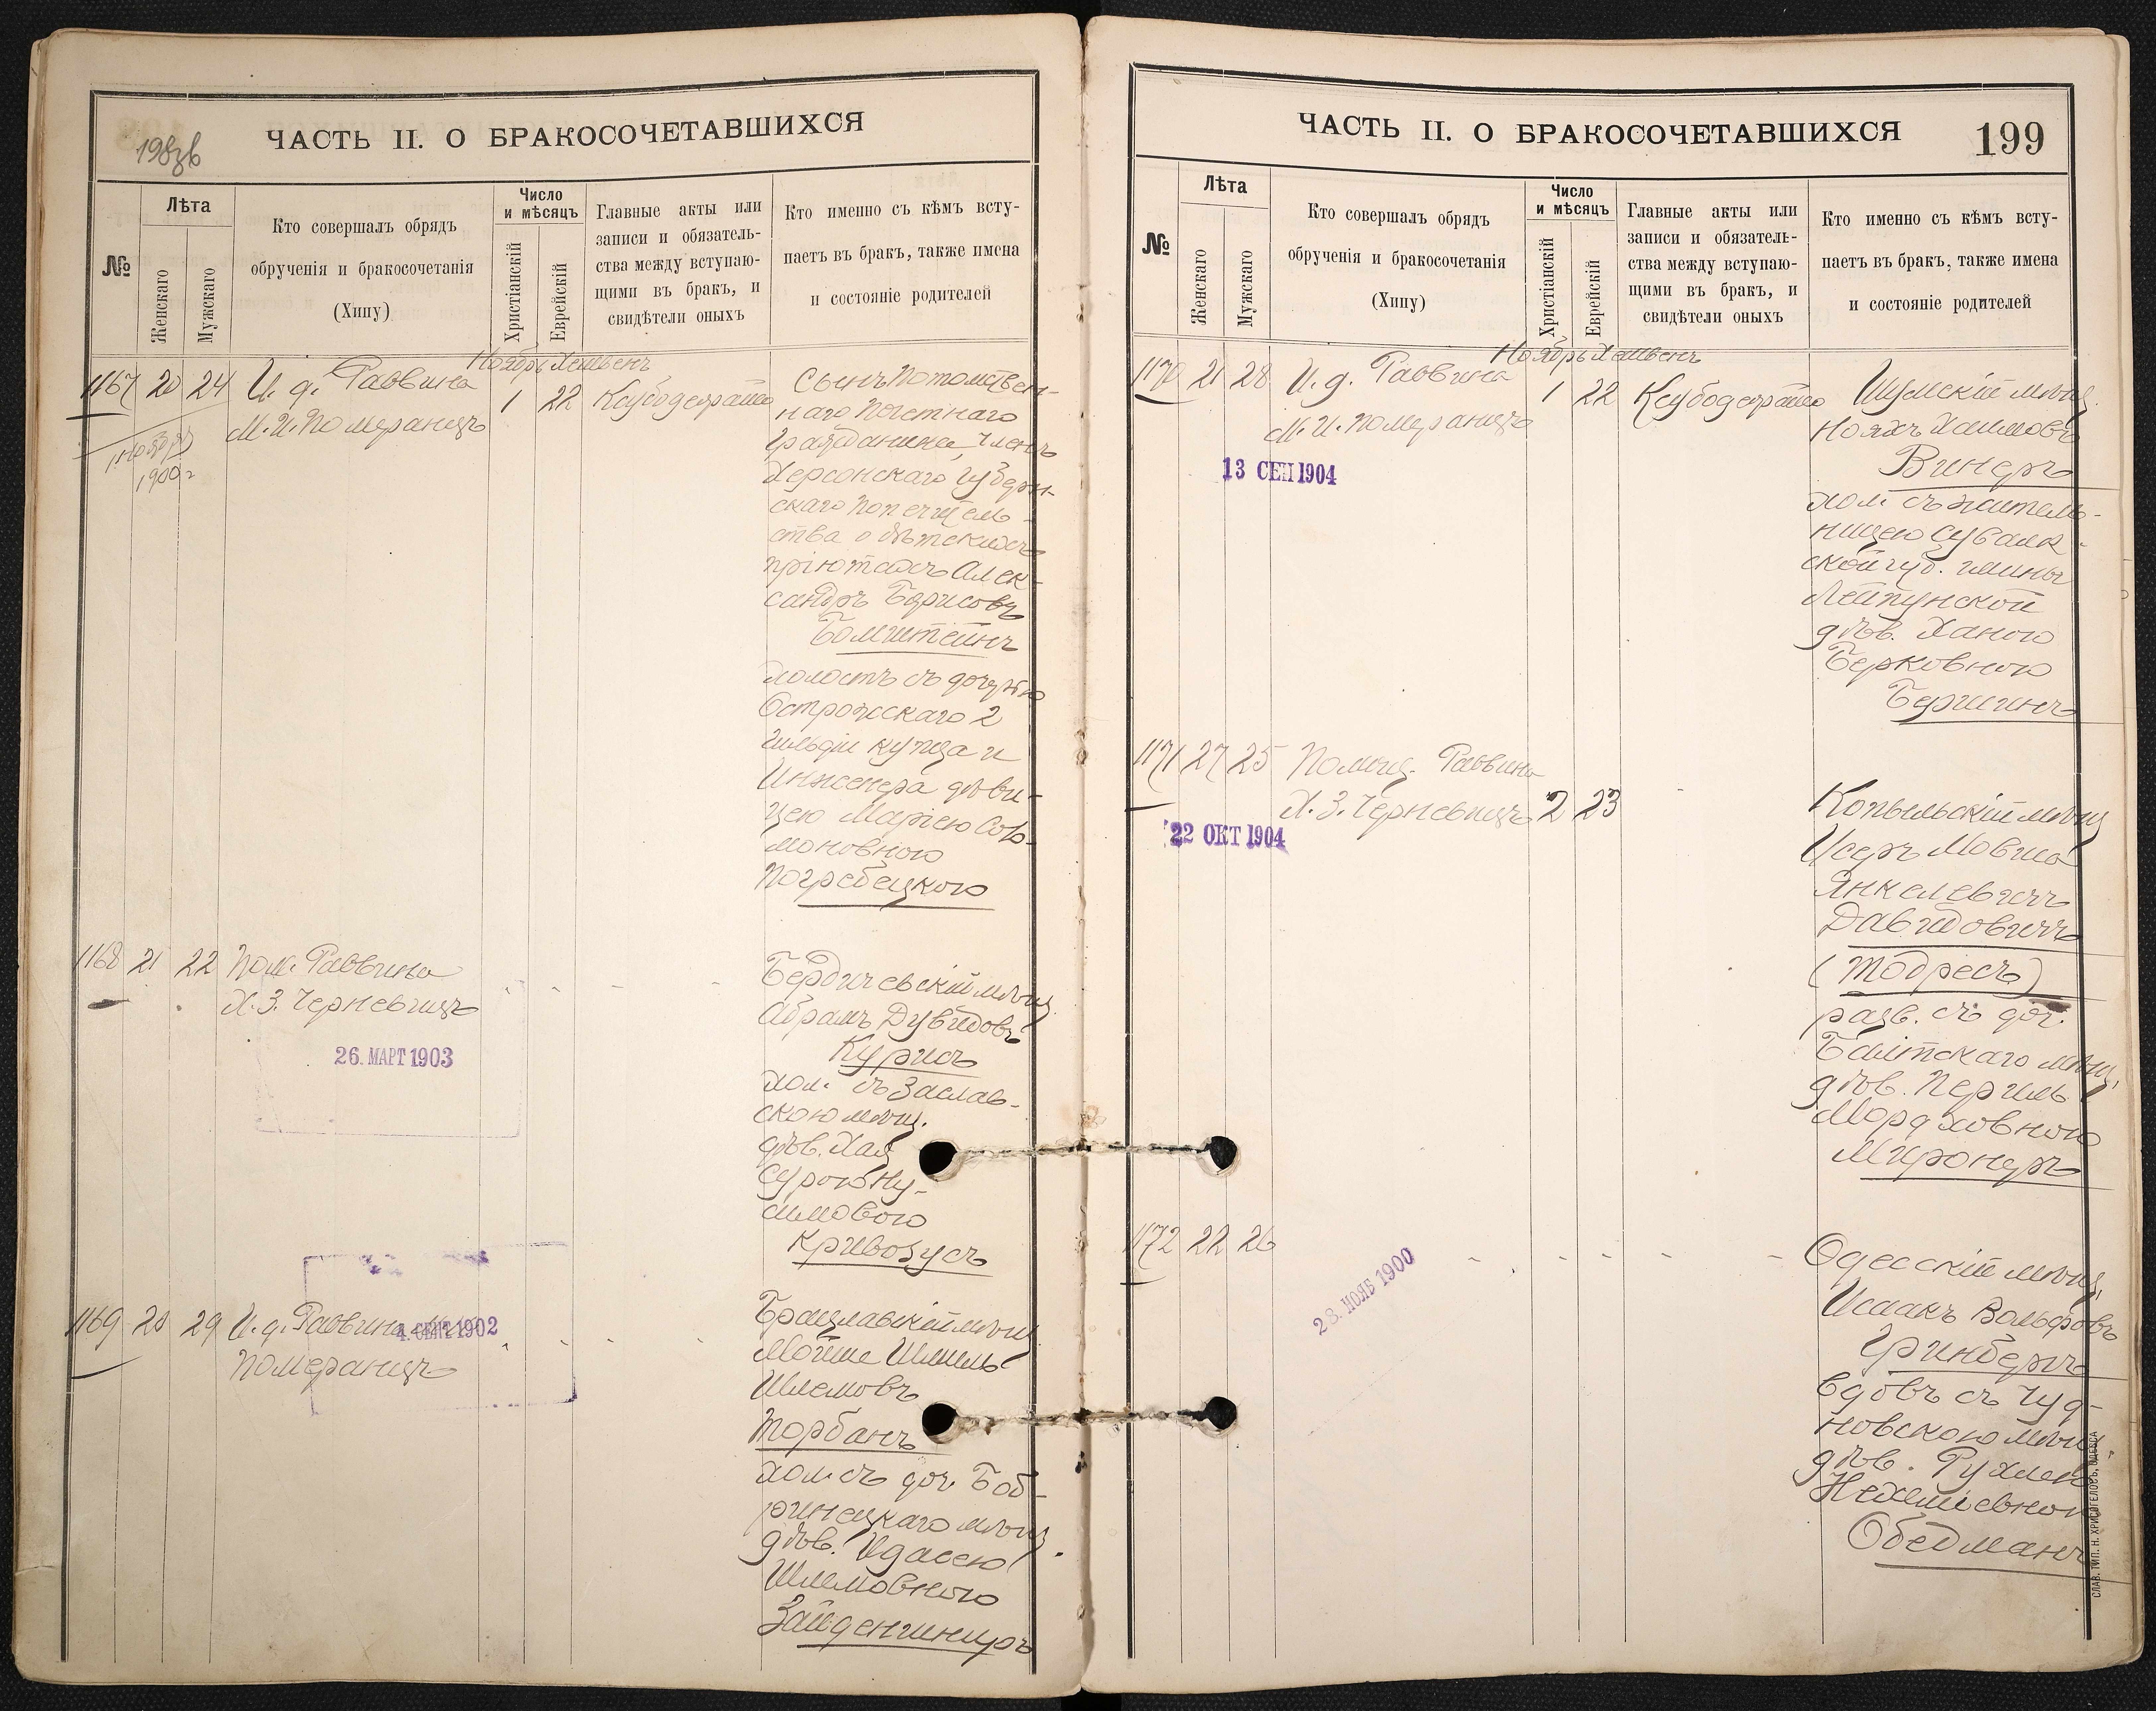 198 зв
ЧАСТЬ II. О БРАКОСОЧЕТАВШИХСЯ
№
Лѣта
Женскаго
Мужскаго
Кто совершалъ обрядъ
обрученія и бракосочетанія
(Хипу)
Число
и мѣсяцъ
Христіанскій
Еврейскій
Главные акты или
записи и обязатель-
ства между вступаю-
щими въ бракъ, и
свидѣтели оныхъ
Кто именно съ кѣмъ всту-
паетъ въ бракъ, также имена
и состояніе родителей
Ноябрь Хешвенъ
1167 20 24 И. д. Раввина
М. И. Померанцъ
1 22
1 Ноября
1900 г
Сынъ Потомствен-
наго Почетнаго
Гражданина, членъ
Херсонскаго Губерн-
скаго Попечитель-
ства о дѣтскихъ
пріютахъ Алек-
сандръ Борисовъ
Бомштейнъ
холостъ съ дочерью
Острожскаго 2
гильдіи купца и
Инженера дѣви-
цею Маріею Соло-
моновною
Погребецкою
1168 21 22 Пом. Раввина
Х. З. Черневицъ
26. МАРТ 1903
Бердичевскій мѣщ.
Абрамъ Дувидовъ
Курисъ
хол. съ Заслав-
скою мѣщ.
дѣв. Хая
Сурою Ну-
симовою
Кривозусъ
1169 20 29 И. д. Раввина
Померанцъ
4. СЕНТ. 1902
Брацлавскій мѣщ
Мойше Шмиль
Шлемовъ
Торбанъ
хол. съ доч. Боб-
ринецкаго мѣщ.
дѣв. Идасею
Шлемовною
Зайденшниръ
ЧАСТЬ II. О БРАКОСОЧЕТАВШИХСЯ
199
№
Лѣта
Женскаго
Мужскаго
Кто совершалъ обрядъ
обрученія и бракосочетанія
(Хипу)
Число
и мѣсяцъ
Христіанскій
Еврейскій
Главные акты или
записи и обязатель-
ства между вступаю-
щими въ бракъ, и
свидѣтели оныхъ
Кто именно съ кѣмъ всту-
паетъ въ бракъ, также имена
и состояніе родителей
Ноябрь Хешвенъ
1170 21 28 И. д. Раввина
М. И. Померанцъ
1 22
13 СЕН 1904
Шумскій мѣщ.
Нояхъ Хаимовъ
Винеръ
хол. съ житель-
ницею Сувалк-
ской губ. гмины
Лейпунской
дѣв. Ханою
Берковною
Бершинъ
1171 27 25 Помощ. Раввина
Х. З. Черневицъ 2 23
22 ОКТ 1904
Копыльскій мѣщ
Исеръ Мовша
Янкелевичъ
Давидовичъ
(Тодресъ)
разв. съ доч.
Балтскаго мѣщ.
дѣв. Перпль
Мордховною
Миронеръ
1172 22 26
28. НОЯБ 1900
Одесскій мѣщ.
Исаакъ Вольфовъ
Гринбергъ
вдовъ съ Чуд-
новскою мѣщ.
дѣв. Рухлею
Нехеміевною
Обедманъ
СЛАВ. ТИП. Н. ХРИСОГЕЛОСЪ, ОДЕССА